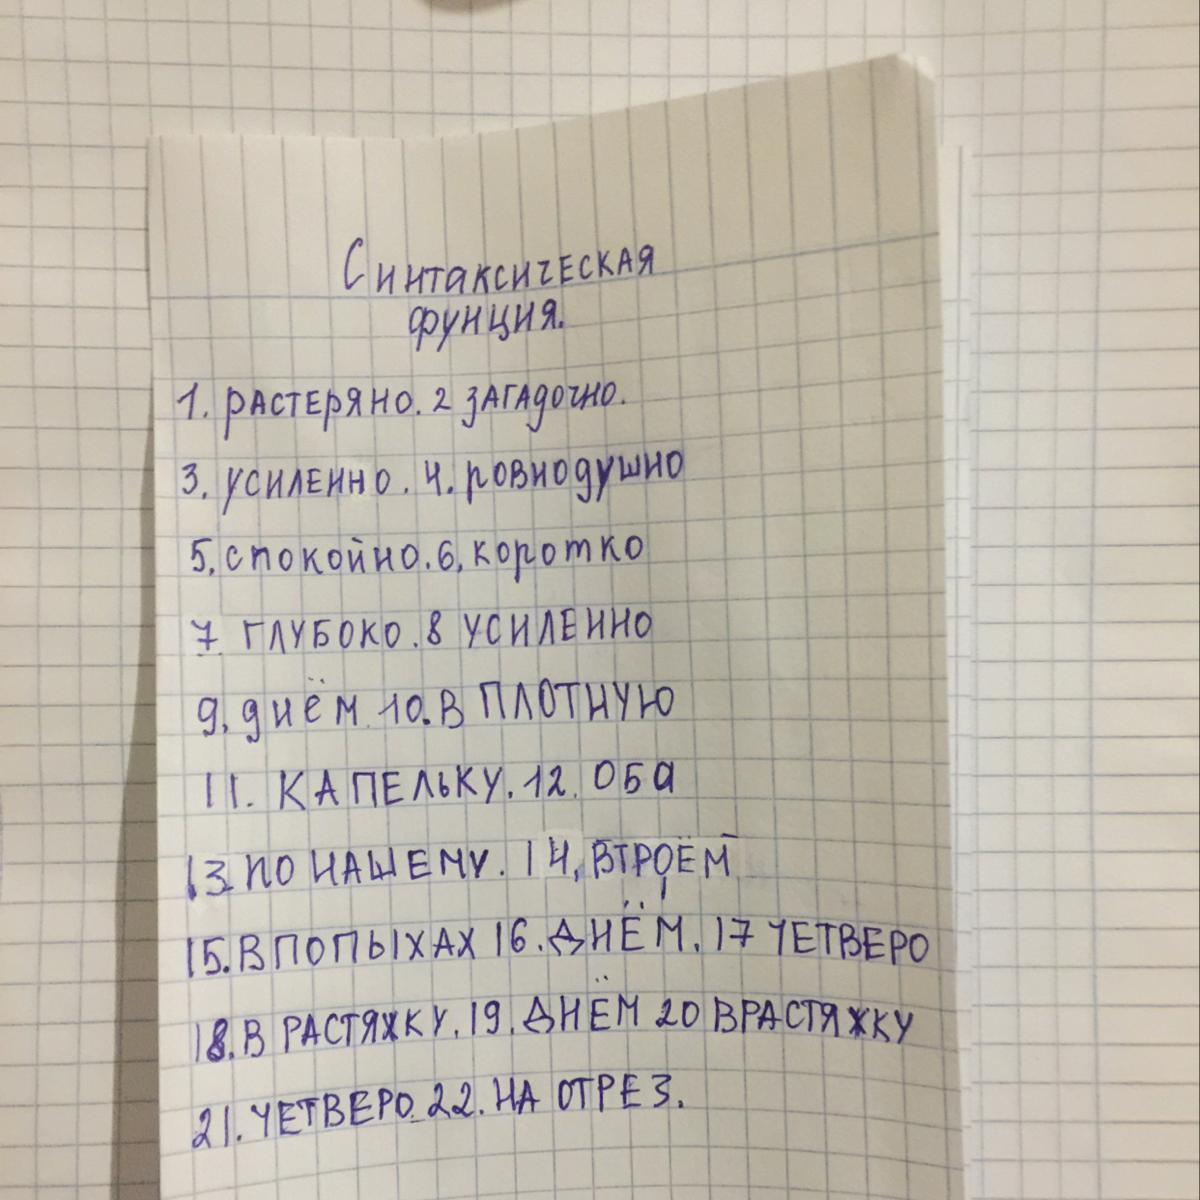 Синтаксическая
функция.
1. растеряно. 2 загадочно.
3. усиленно. 4. ровнодушно
5. спокойно. 6. коротко
7 глубоко. 8 усиленно
9. днём 10. в плотную
11. капельку. 12. оба
13 по нашему. 14. втроём
15. впопыхах 16. днём. 17 четверо
18. в растяжку. 19. днём 20 врастяжку
21. четверо 22. на отрез.